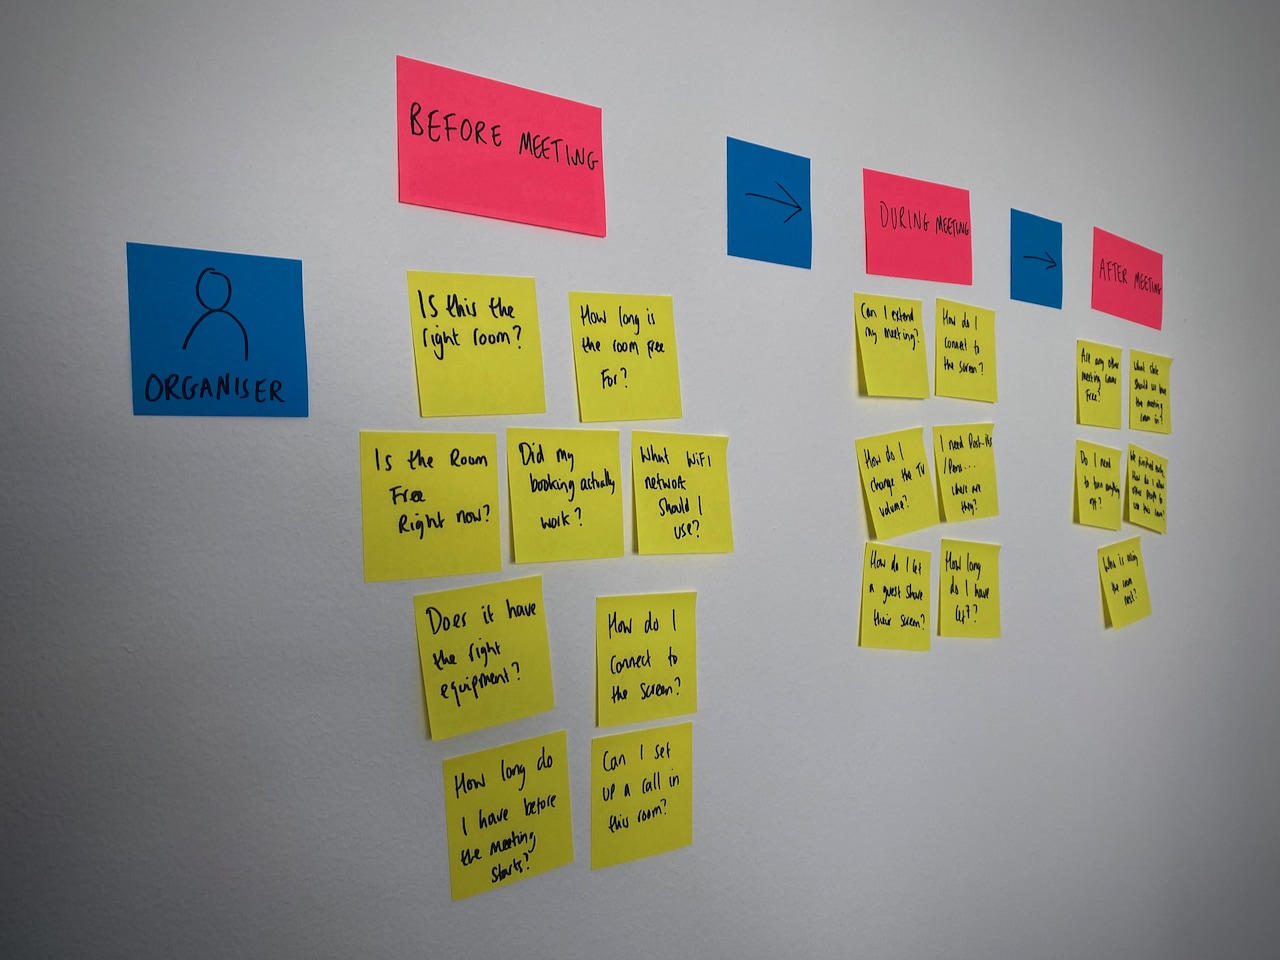 BEFORE MEETING
DURING MEETING
AFTER MEETING
ORGANISER
Is this the
right room?
How long is
the room free
For?
Is the Room
Free
Right now?
Did my
booking actually
work?
What WiFi
network
Should I
use?
Does it have
the right
equipment?
How do I
connect to
the screen?
How long do
I have before
the meeting
starts?
Can I set
up a call in
this room?
Can I extend
my meeting?
How do I
connect to
the screen?
How do I
change the TV
volume?
I need Post-its
/Pens...
where are
they?
How do I let
a guest share
their screen?
How long
do I have
left?
Are any other
meeting rooms
Free?
What state
should we leave
the meeting
room in?
Do I need
to turn anything
off?
We finished early,
How do I allow
other people to
use this room?
Who is using
the room
next?